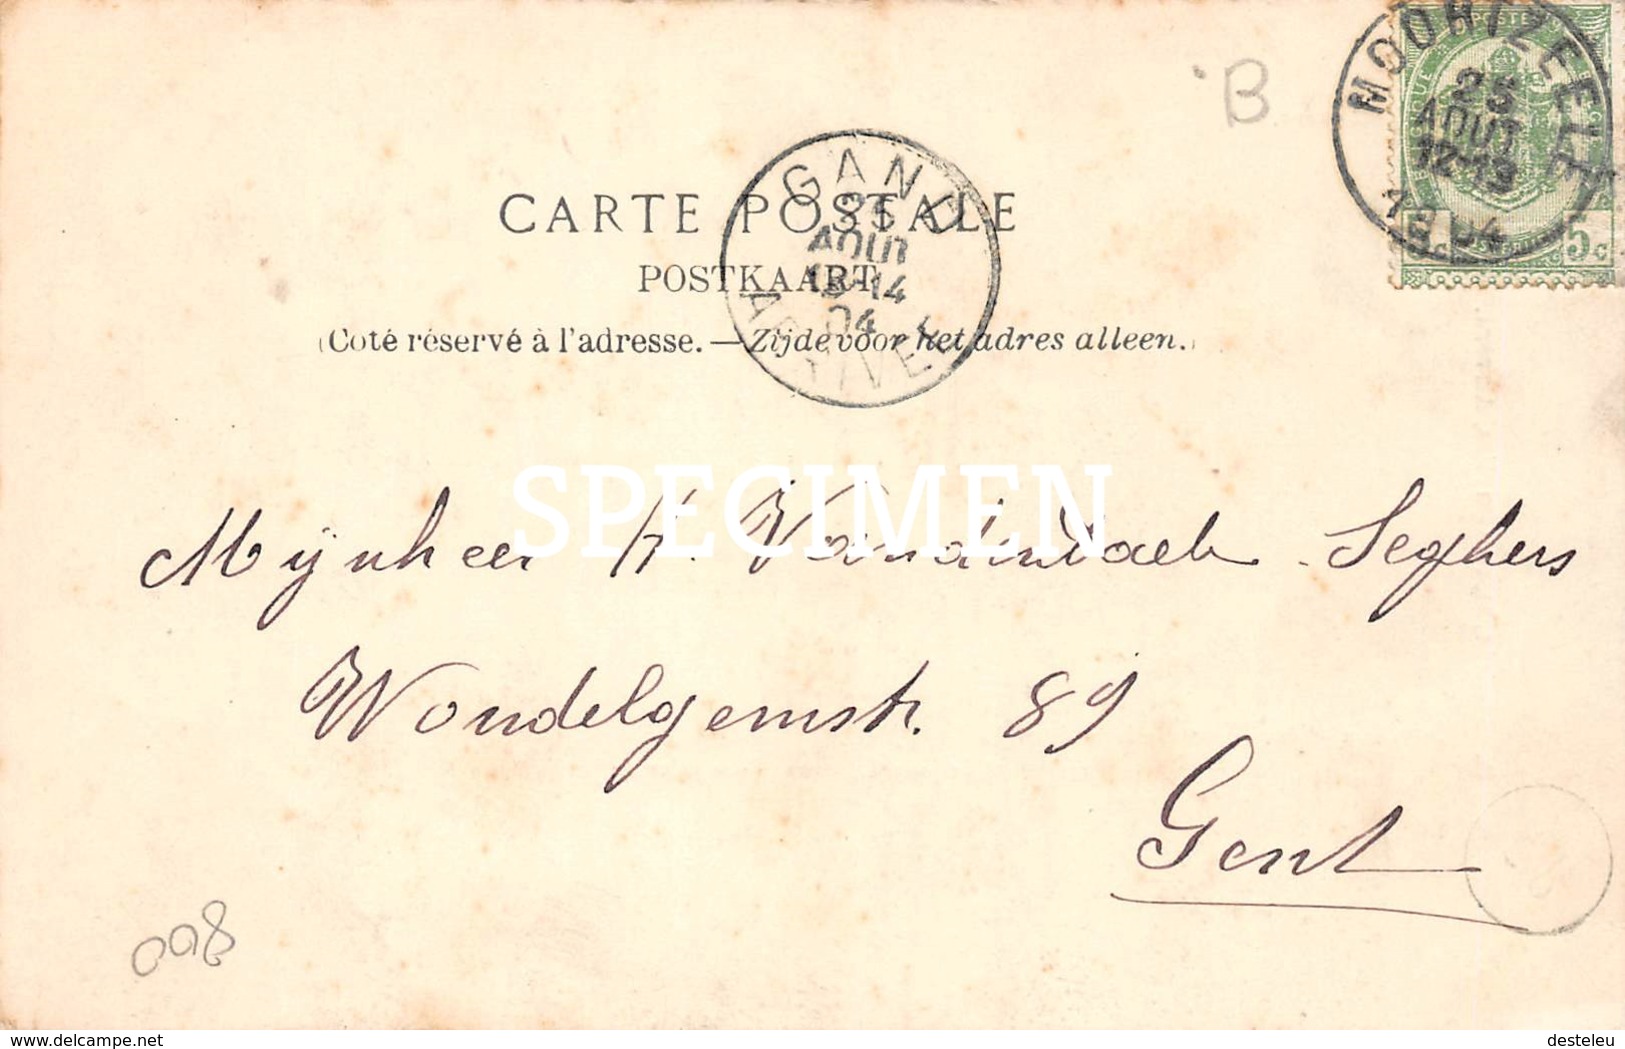 B
MOORTZEELE
25
AOUT
12-13
1904
5c
GAND
25
AOUT
13-14
04
ARRIVEE
CARTE POSTALE
POSTKAART
(Coté réservé à l'adresse. — Zijde voor het adres alleen.)
SPECIMEN
Mynheer Seghers
Wondelgemstr. 89
Gent
delcampe.net
desteleu